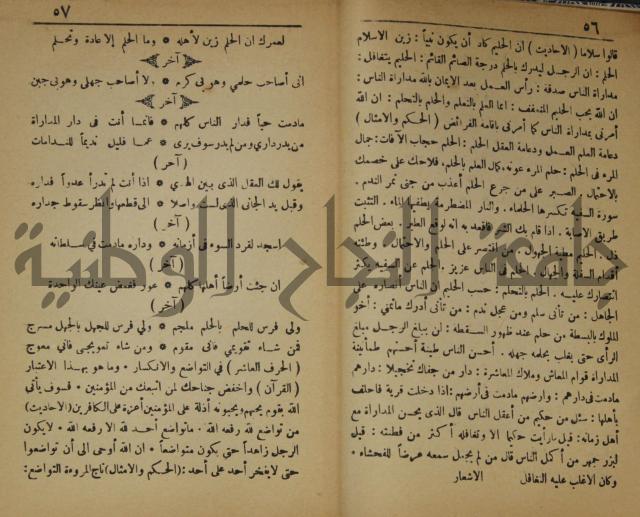 ٥٦
قالوا سلاما (الاحاديث) ان الحليم كاد أن يكون نبياً : زين الاسلام
الحلم : ان الرجل ليدرك بالحلم درجة الصائم القائم : الحليم يتغافل :
مداراة الناس صدقة : رأس العمل بعد الايمان بالله مداراة الناس :
ان الله يحب الحليم المتعفف : انما العلم بالتعلم والحلم بالتحلم : ان الله
أمرني بمداراة الناس كما أمرني باقامة الفرائض (الحكم والامثال)
دعامة العلم العمل ودعامة العقل الحلم : الحلم حجاب الآفات : جمال
المرء في الحلم : حلم المرء عونه . كمال العلم بالحلم . فلاحك على خصمك
بالاحتمال . الصبر على من جرع الحلم أعذب من جنى ثمر الندم .
سورة السفيه تكسرها الحلماء . والنار المضطرمة يطفيها الماء . التثبت
طريق الاصابة . اذا قام بك الشر فاقعد به انه لوقع الطير . بعض الحلم
ذل . الحلم مطية الجهول . من اقتصر على الحلم والاحتمال وطئته
أقدام السفلة والجهل . الحلم في الناس عزيز . الحلم عن السفيه يكثر
انتصارك عليه . الحلم بالتحلم : حسب الحليم ان الناس أنصاره على
الجاهل : من تأنى سلم ومن عجل ندم : من تأنى أدرك ماتمنى : أخو
الملوك بالبسطة من حلم عند ظهور السقطة : لن يبلغ الرجل مبلغ
الرأى حتى يغلب بحلمه جهله . أحسن الناس طينة أحسنهم طمأنينة
المداراة قوام المعاش وملاك المعاشرة : دار من جفاك تخجيلا : دارهم
مادمت في دارهم : وارضهم مادمت في أرضهم : اذا دخلت قرية فاحلف
بأهلها : سئل من حكيم من أعقل الناس قال الذى يحسن المداراة مع
أهل زمانه : قيل مارأيت حكيما الا وتغافله أكثر من فطنته : قيل
لبزرجمهر من أكمل الناس قال من لم يجعل سمعه غرضاً للفحشاء *
وكان الاغلب عليه التغافل الاشعار
٥٧
لعمرك ان الحلم زين لأهله * وما الحلم إلا عادة وتحلم
آخر
انى أصاحب حلمي وهو بى كرم * ولا أصاحب جهلي وهو بى جبن
آخر
مادمت حياً فدار الناس كلهم * فانما أنت في دار المداراة
من يدر دارى ومن لم يدر سوف يرى * عما قليل نديماً للندامات
(آخر)
يقول لك العقل الذى بين الهدى * اذا أنت لم تدرأ عدواً فداره
وقبل يد الجانى الذى لست واصلا * الى قطعها وانظر سقوط جداره
(آخر)
اسجد لقرد السوء في أزمانه * وداره مادمت في سلطانه
(آخر)
ان جئت أرضاً أهلها كلهم * عور فغمض عينك الواحدة
(آخر)
ولى فرس للحلم بالحلم ملجم * ولي فرس للجهل بالجهل مسرج
فمن شاء تقويمي فانى مقوم * ومن شاء تعويجى فاني معوج
(الحرف العاشر) في التواضع والانكسار * وما هو بهذا الاعتبار
(القرآن) واخفض جناحك لمن اتبعك من المؤمنين * فسوف يأتى
الله بقوم يحبهم ويحبونه أذلة على المؤمنين أعزة على الكافرين (الاحاديث)
من تواضع لله رفعه الله * ماتواضع أحد لله الا رفعه الله * لايكون
الرجل زاهداً حتى يكون متواضعاً * ان الله أوحى الى أن تواضعوا
حتى لايفخر أحد على أحد : (الحكم والامثال) تاج المروءة التواضع :
جامعة النجاح الوطنية